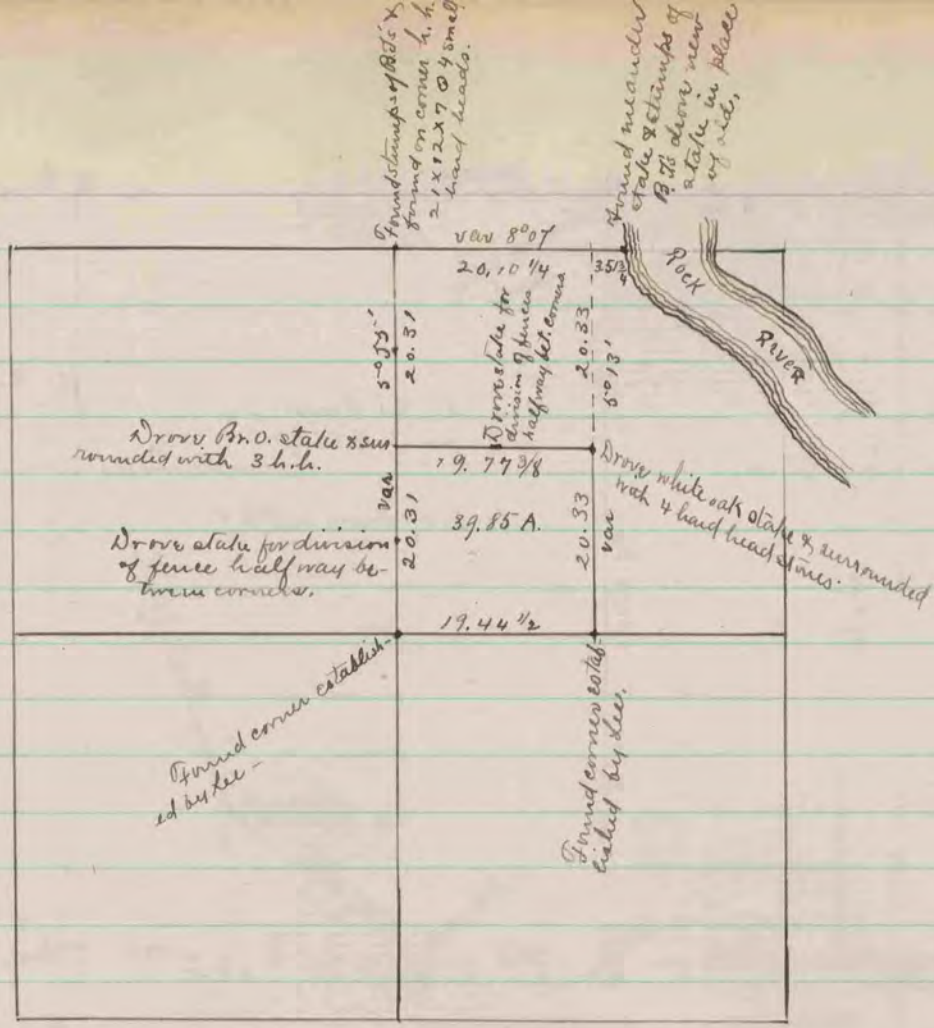 Found stumps of B.T's &
found on corner h.h.
21 x 12 x 7 @ 4 small
hard heads.
Found meander
stake & stumps of
B.T's drove new
stake in place
of old.
var 8°07
20.10 1/4
3.51 3/4
Rock
River
20.31
Drove stake for
division of fences
halfway bet. corners
20.33
5°13'
Drove Br. O. stake & sur
rounded with 3 h.h.
19.77 3/8
Drove white oak stake & surrounded
with 4 hard head stones.
var
20.31
39.85 A.
20.33
var
Drove stake for division
of fence half way be-
tween corners.
19.44 1/2
Found corner establish-
ed by Lee -
Found corner estab-
lished by Lee.